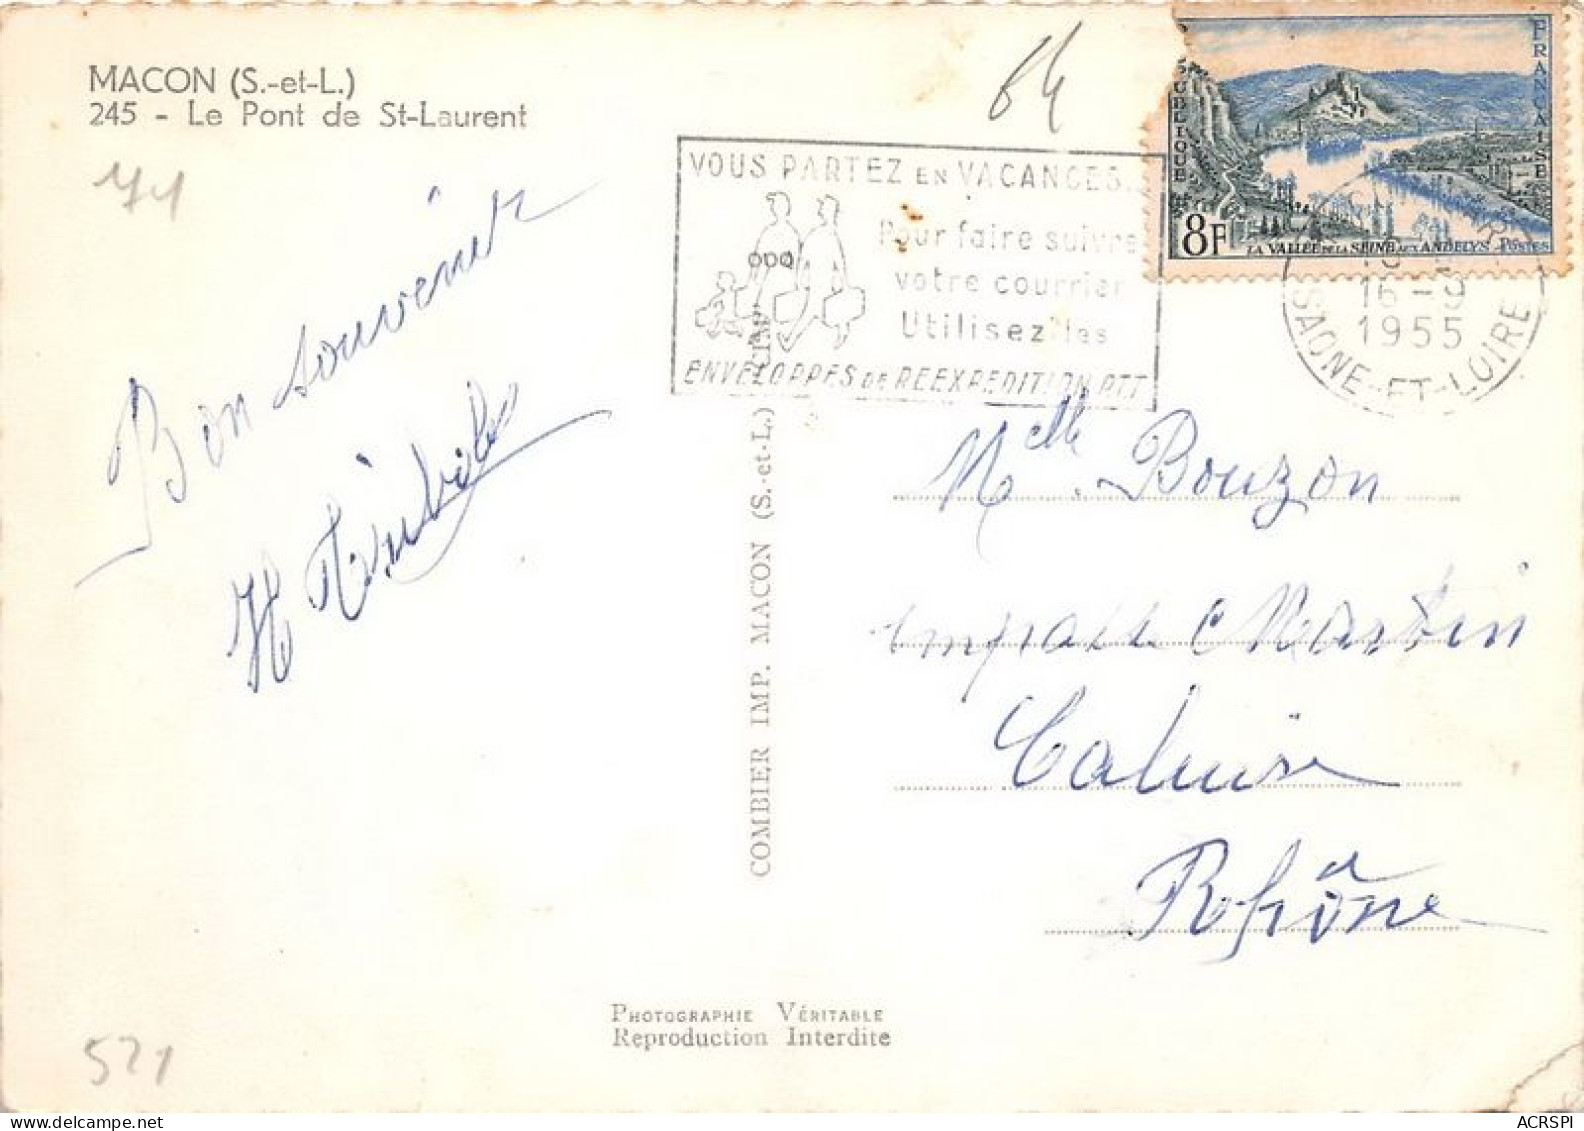 MACON (S.-et-L.)
245 - Le Pont de St-Laurent
71
64
VOUS PARTEZ EN VACANCES...
Pour faire suivre
votre courrier
Utilisez les
ENVELOPPES DE REEXPEDITION PTT
RÉPUBLIQUE
FRANÇAISE
8F
LA VALLÉE DE LA SEINE AUX ANDELYS POSTES
16 - 9
1955
SAONE-ET-LOIRE
Bon souvenir
H
Melle Bouzon
impasse Martin
Caluire
Rhône
COMBIER IMP. MACON (S.-et-L.) CIM
PHOTOGRAPHIE VÉRITABLE
Reproduction Interdite
521
ACRSPI